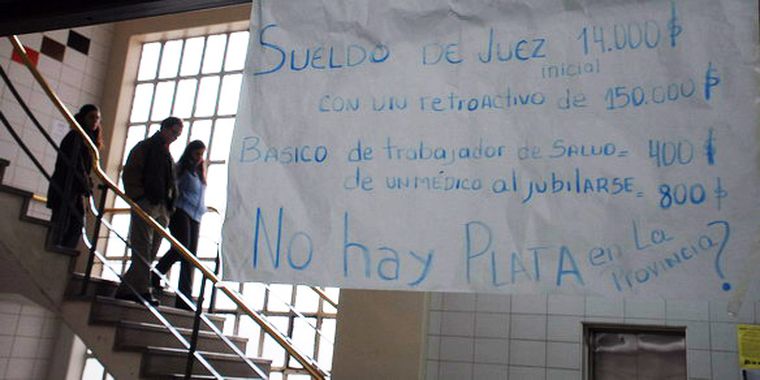 SUELDO DE JUEZ 14.000$
inicial
CON UN retroActivo de 150.000$
BASICO de trabajador de SALUD= 400$
de UN MÉDICO al jubilarse= 800$
No hay PLATA en La
Provincia?